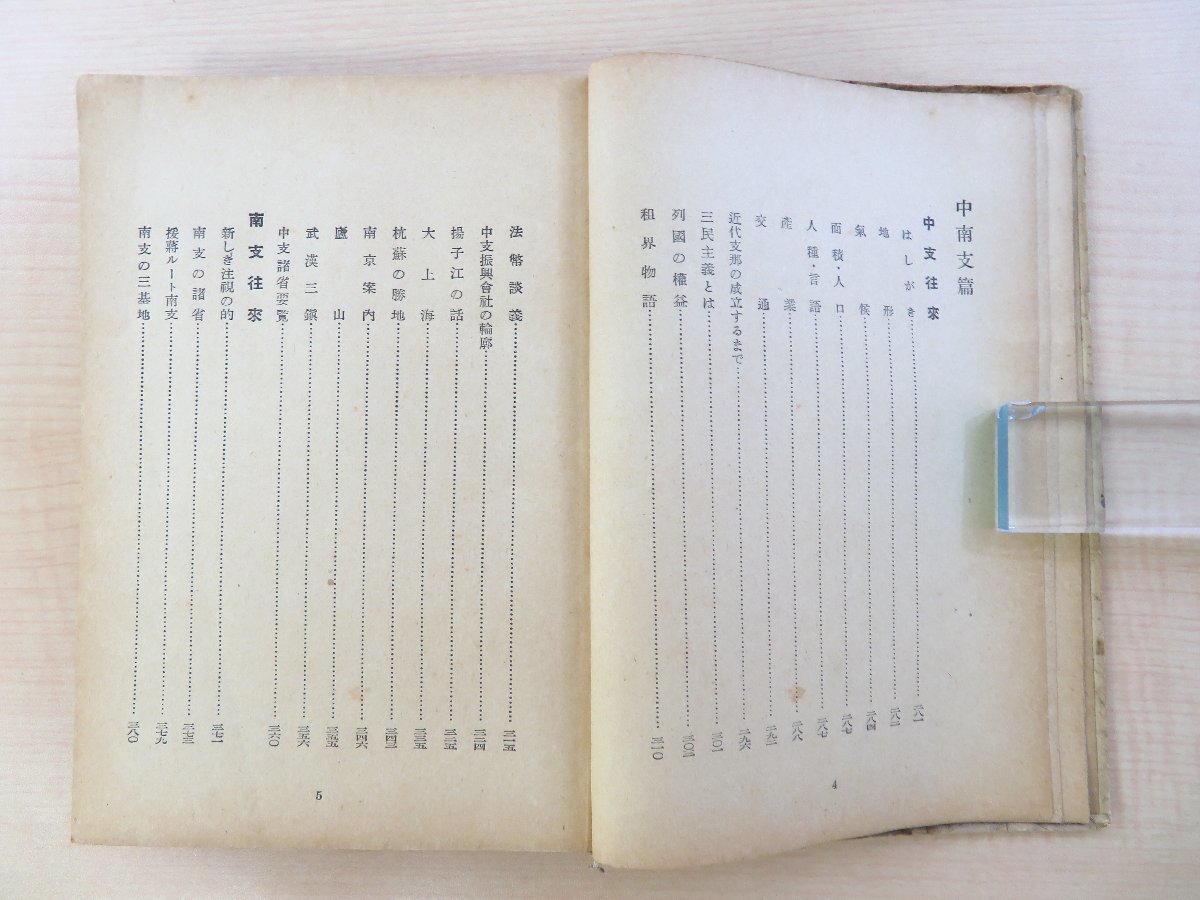 中南支篇
中支往來
はしがき……二八一
地形……二八二
氣候……二八四
面積・人口……二八七
人種・言語……二八七
產業……二八八
交通……二九二
近代支那の成立するまで……二九六
三民主義とは……三〇一
列國の權益……三〇二
租界物語……三一〇
4
法幣談義……三一五
中支振興會社の輪廓……三二四
揚子江の話……三二五
大上海……三三五
杭蘇の勝地……三四三
南京案內……三四六
廬山……三五五
武漢三鎭……三五六
中支諸省要覧……三六〇
南支往來
新しき注視の的……三七一
南支の諸省……三七三
援蔣ルート南支……三七九
南支の三基地……三八〇
5